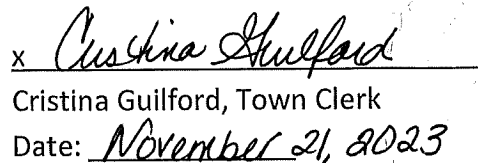 x Cristina Guilford
Cristina Guilford, Town Clerk
Date: November 21, 2023